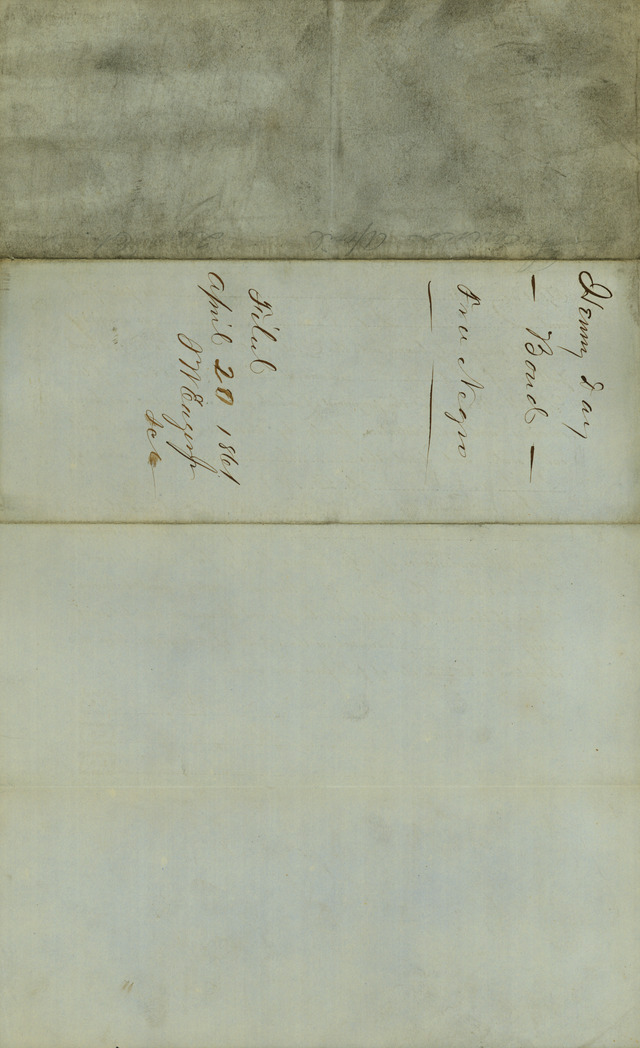 Henry Day
— Bond —
Free Negro
Filed
April 20 1861